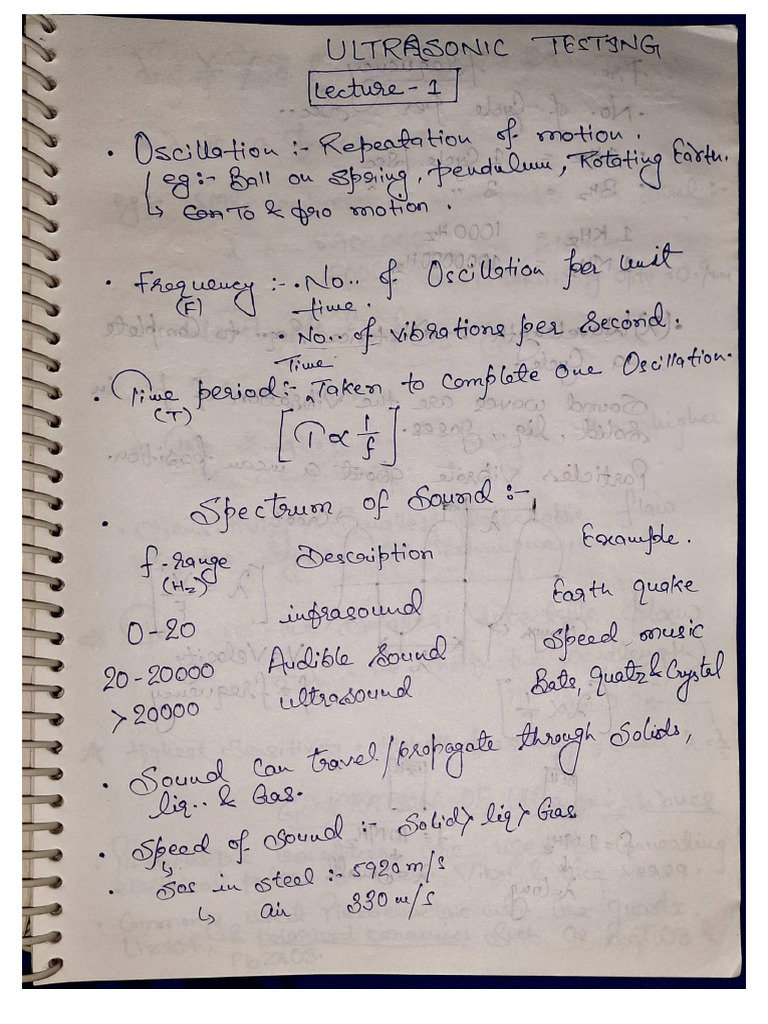 ULTRASONIC TESTING
Lecture - 1
• Oscillation :- Repeatation of motion.
eg :- Ball on Spring, pendulum, Rotating Earth.
↳ Con To & fro motion.
• Frequency :- • No.. of Oscillation per Unit
(F) time.
• No.. of vibrations per Second.
Time
• Time period :- ^ Taken to complete One Oscillation.
(T)
[T ∝ 1/f].
• Spectrum of Sound :-
f-range Description Example.
(Hz)
0-20 infrasound Earth quake
20-20000 Audible Sound Speed, music
>20000 ultrasound Bats, Quatz & Crystal
• Sound can travel/propagate through Solids,
liq.. & Gas.
• Speed of Sound :- Solid > liq > Gas
• ↳ Sos in steel :- 5920 m/s
↳ air 330 m/s